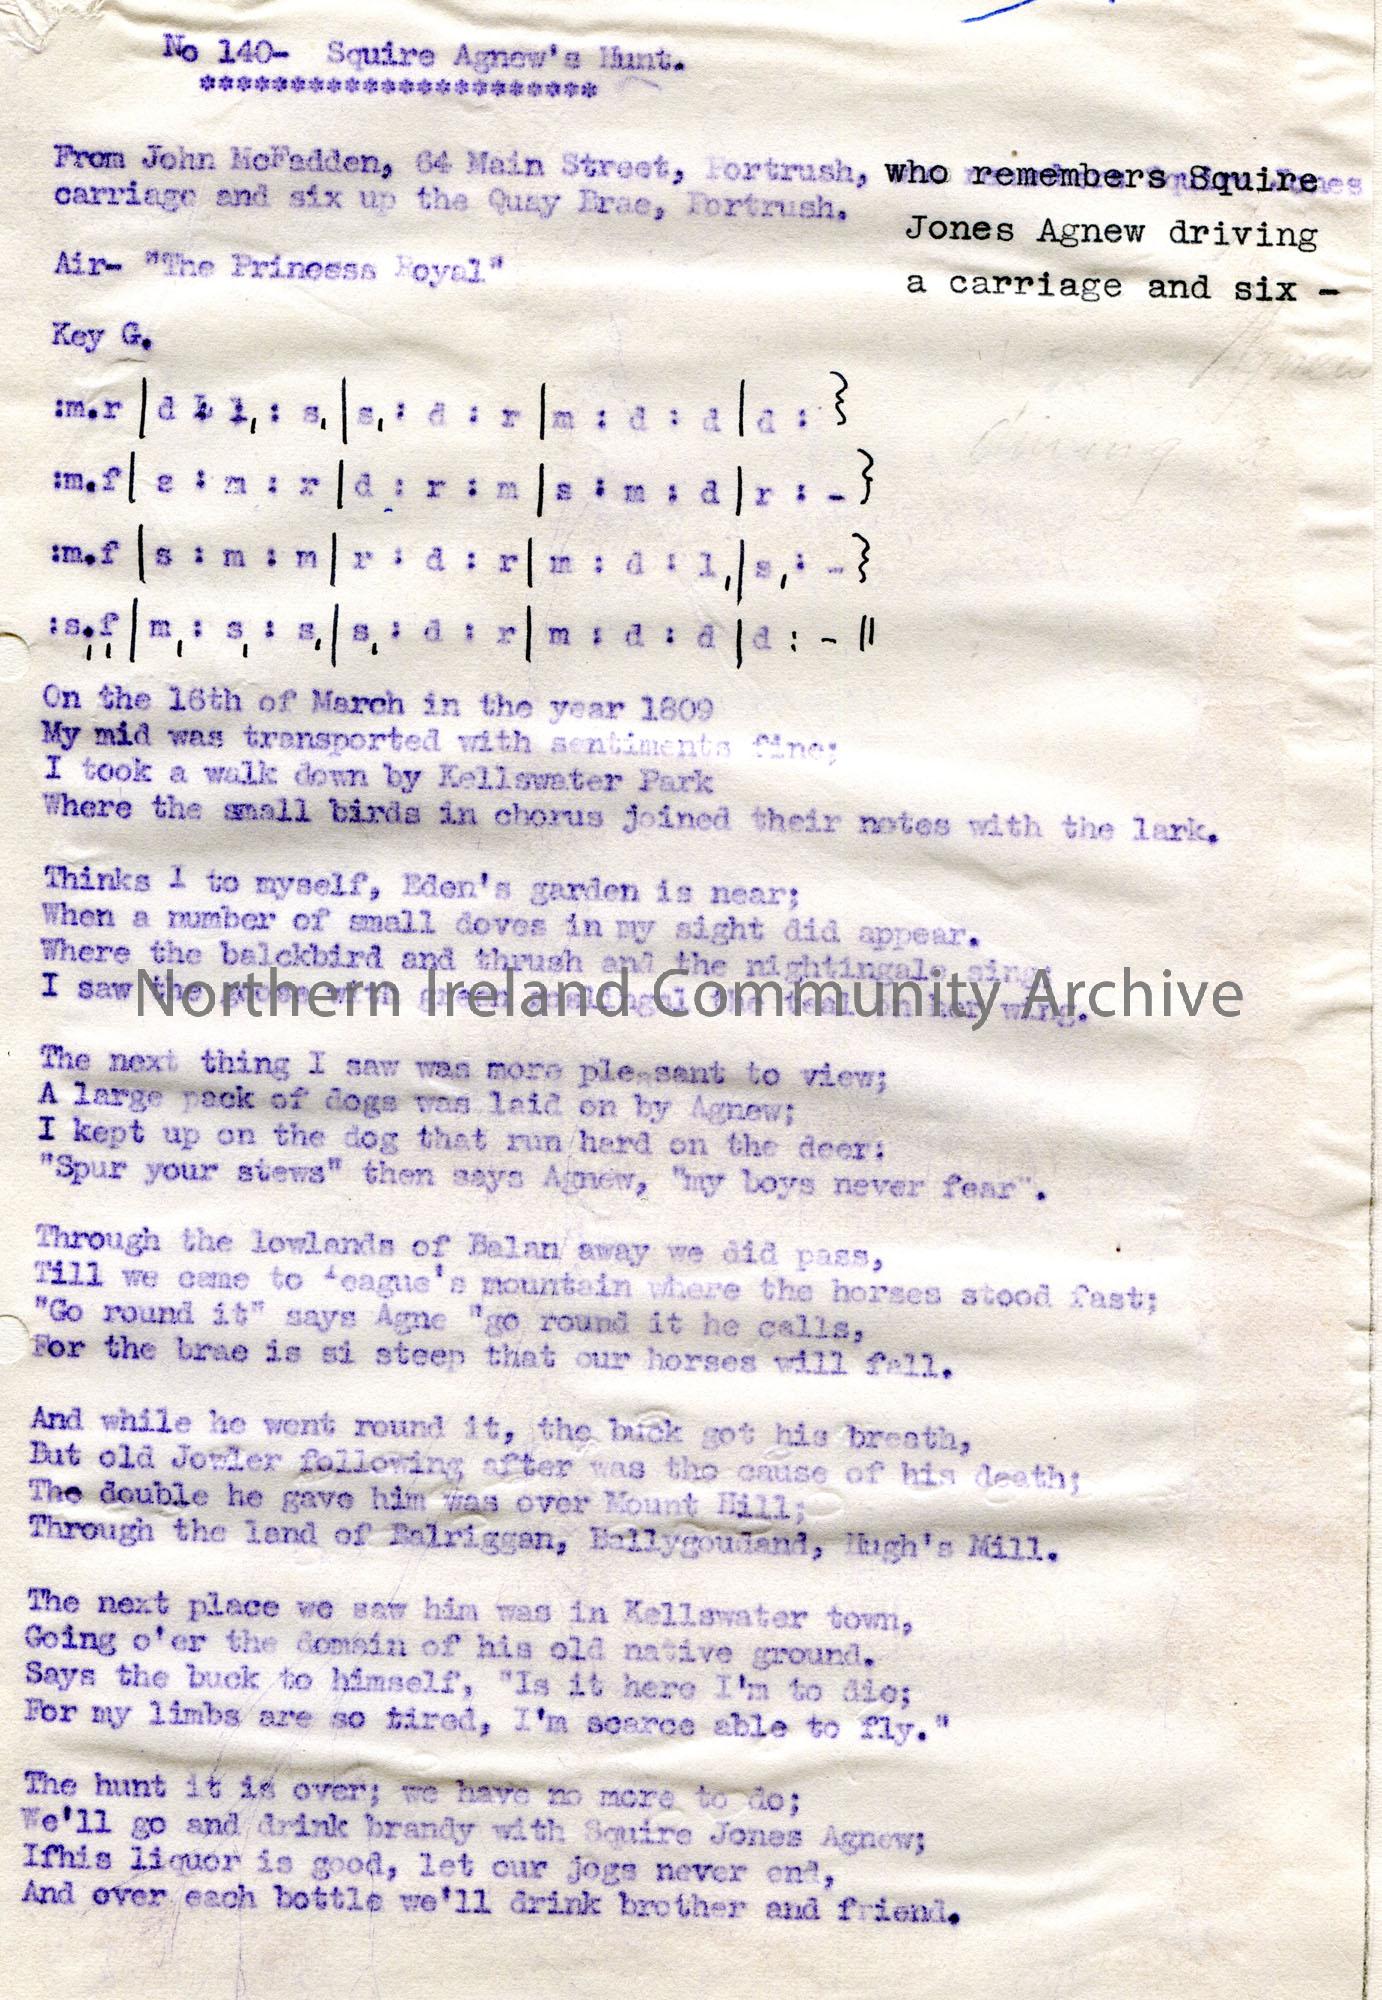 No 140- Squire Agnew's Hunt.
**********************
From John McFadden, 64 Main Street, Portrush, who remembers Squire
Jones Agnew driving
a carriage and six -
carriage and six up the Quay Brae, Portrush.
Air- "The Princess Royal"
Key G.
:m.r | d l, : s, | s, : d : r | m : d : d | d : }
:m.f | s : m : r | d : r : m | s : m : d | r : - }
:m.f | s : m : m | r : d : r | m : d : l, | s, : - }
:s,.f, | m, : s, : s, | s, : d : r | m : d : d | d : - ||
On the 16th of March in the year 1809
My mid was transported with sentiments fine;
I took a walk down by Kellswater Park
Where the small birds in chorus joined their notes with the lark.
Thinks I to myself, Eden's garden is near;
When a number of small doves in my sight did appear.
Where the balckbird and thrush and the nightingale sing;
I saw the goose with green the teal on her wing.
Northern Ireland Community Archive
The next thing I saw was more pleasant to view;
A large pack of dogs was laid on by Agnew;
I kept up on the dog that run hard on the deer:
"Spur your stews" then says Agnew, "my boys never fear".
Through the lowlands of Balan away we did pass,
Till we came to 'eague's mountain where the horses stood fast;
"Go round it" says Agne "go round it he calls,
For the brae is si steep that our horses will fall.
And while he went round it, the buck got his breath,
But old Jowler following after was the cause of his death;
The double he gave him was over Mount Hill;
Through the land of Balriggan, Ballygoudand, Hugh's Mill.
The next place we saw him was in Kellswater town,
Going o'er the domain of his old native ground.
Says the buck to himself, "Is it here I'm to die;
For my limbs are so tired, I'm scarce able to fly."
The hunt it is over; we have no more to do;
We'll go and drink brandy with Squire Jones Agnew;
Ifhis liquor is good, let our jogs never end,
And over each bottle we'll drink brother and friend.